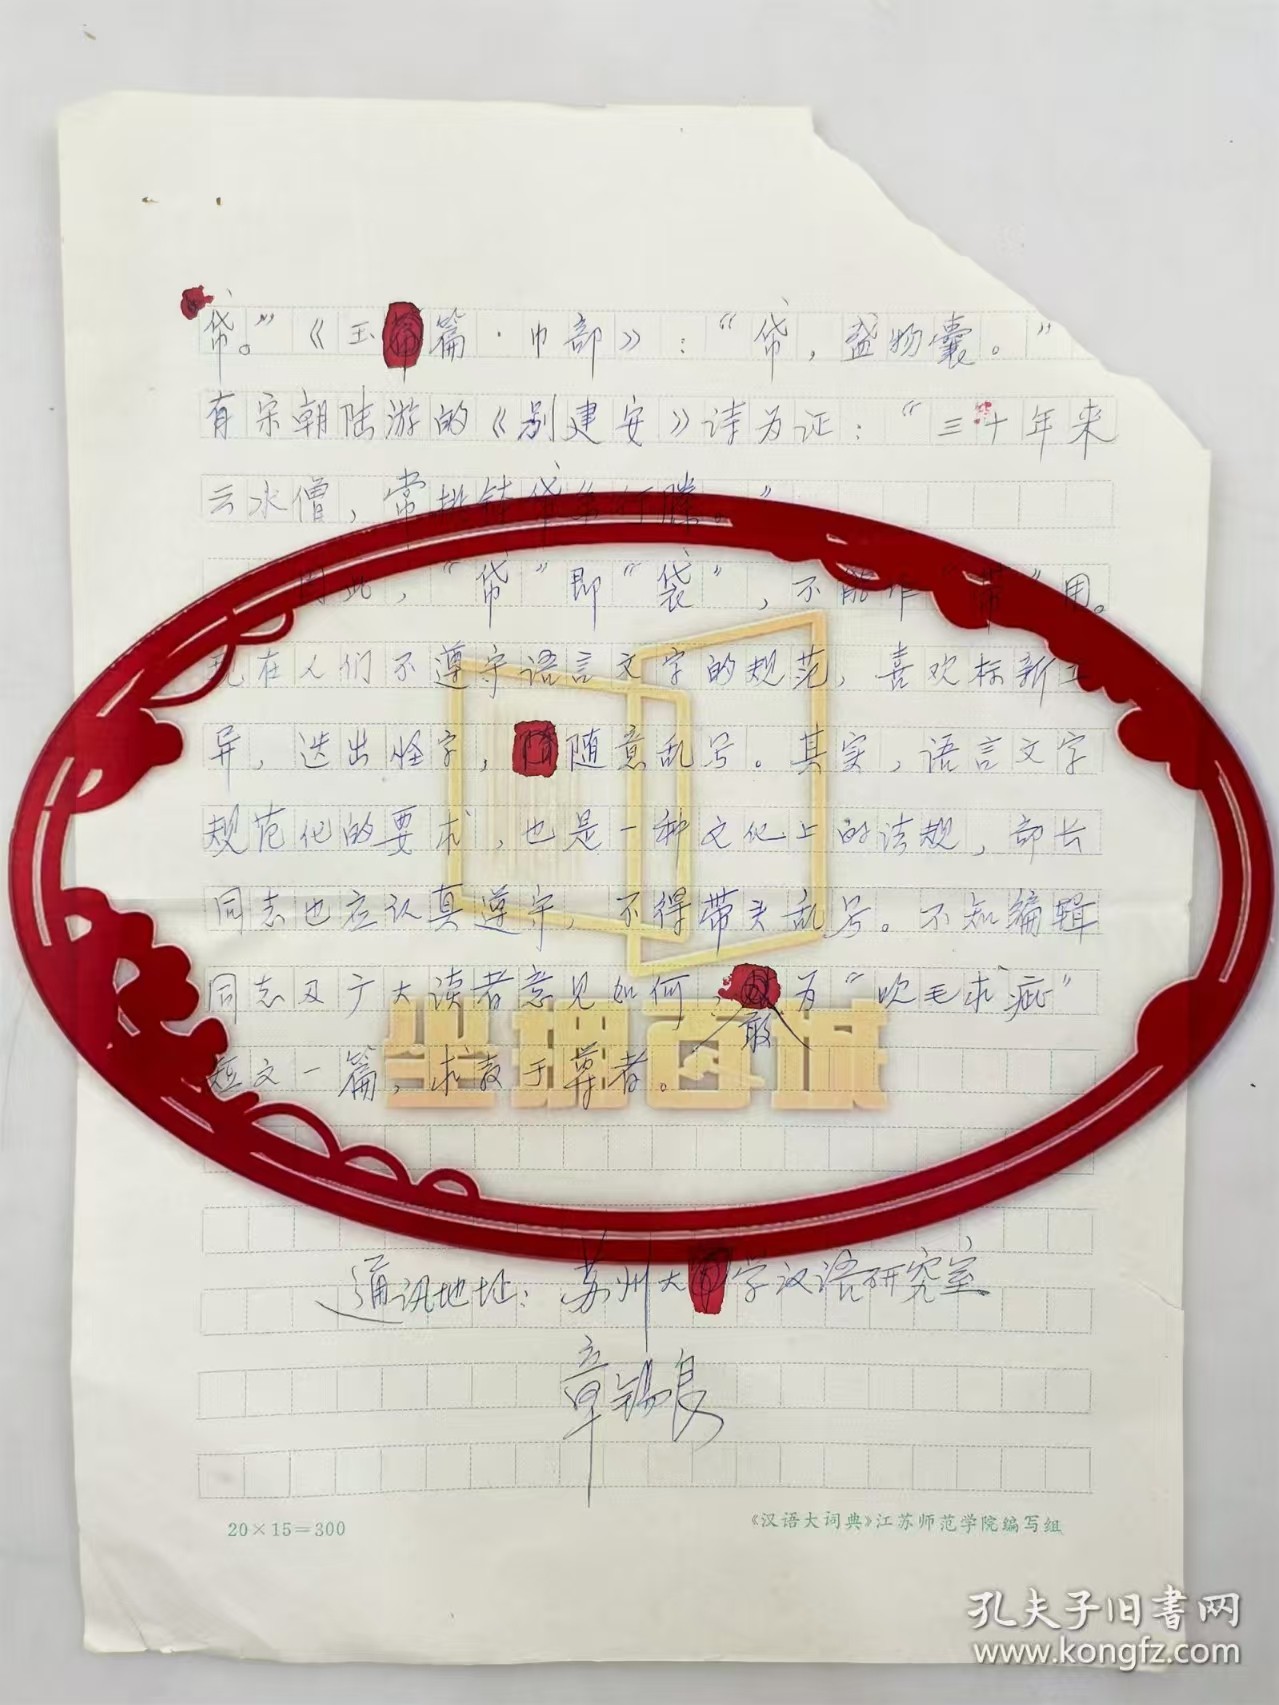 帒。”《玉篇·巾部》：“帒，盛物囊。”
有宋朝陆游的《别建安》诗为证：“三十年来
云水僧，常挑钵帒系行縢。”
因此，“帒”即“袋”，不能作“带”用。
现在人们不遵守语言文字的规范，喜欢标新立
异，造出怪字，随意乱写。其实，语言文字
规范化的要求，也是一种文化上的法规，部长
同志也应认真遵守，不得带头乱写。不知编辑
同志及广大读者意见如何，敢为“吹毛求疵”
短文一篇，求教于尊者。
通讯地址：苏州大学汉语研究室
章锡良
20×15=300
《汉语大词典》江苏师范学院编写组
孔夫子旧书网
www.kongfz.com